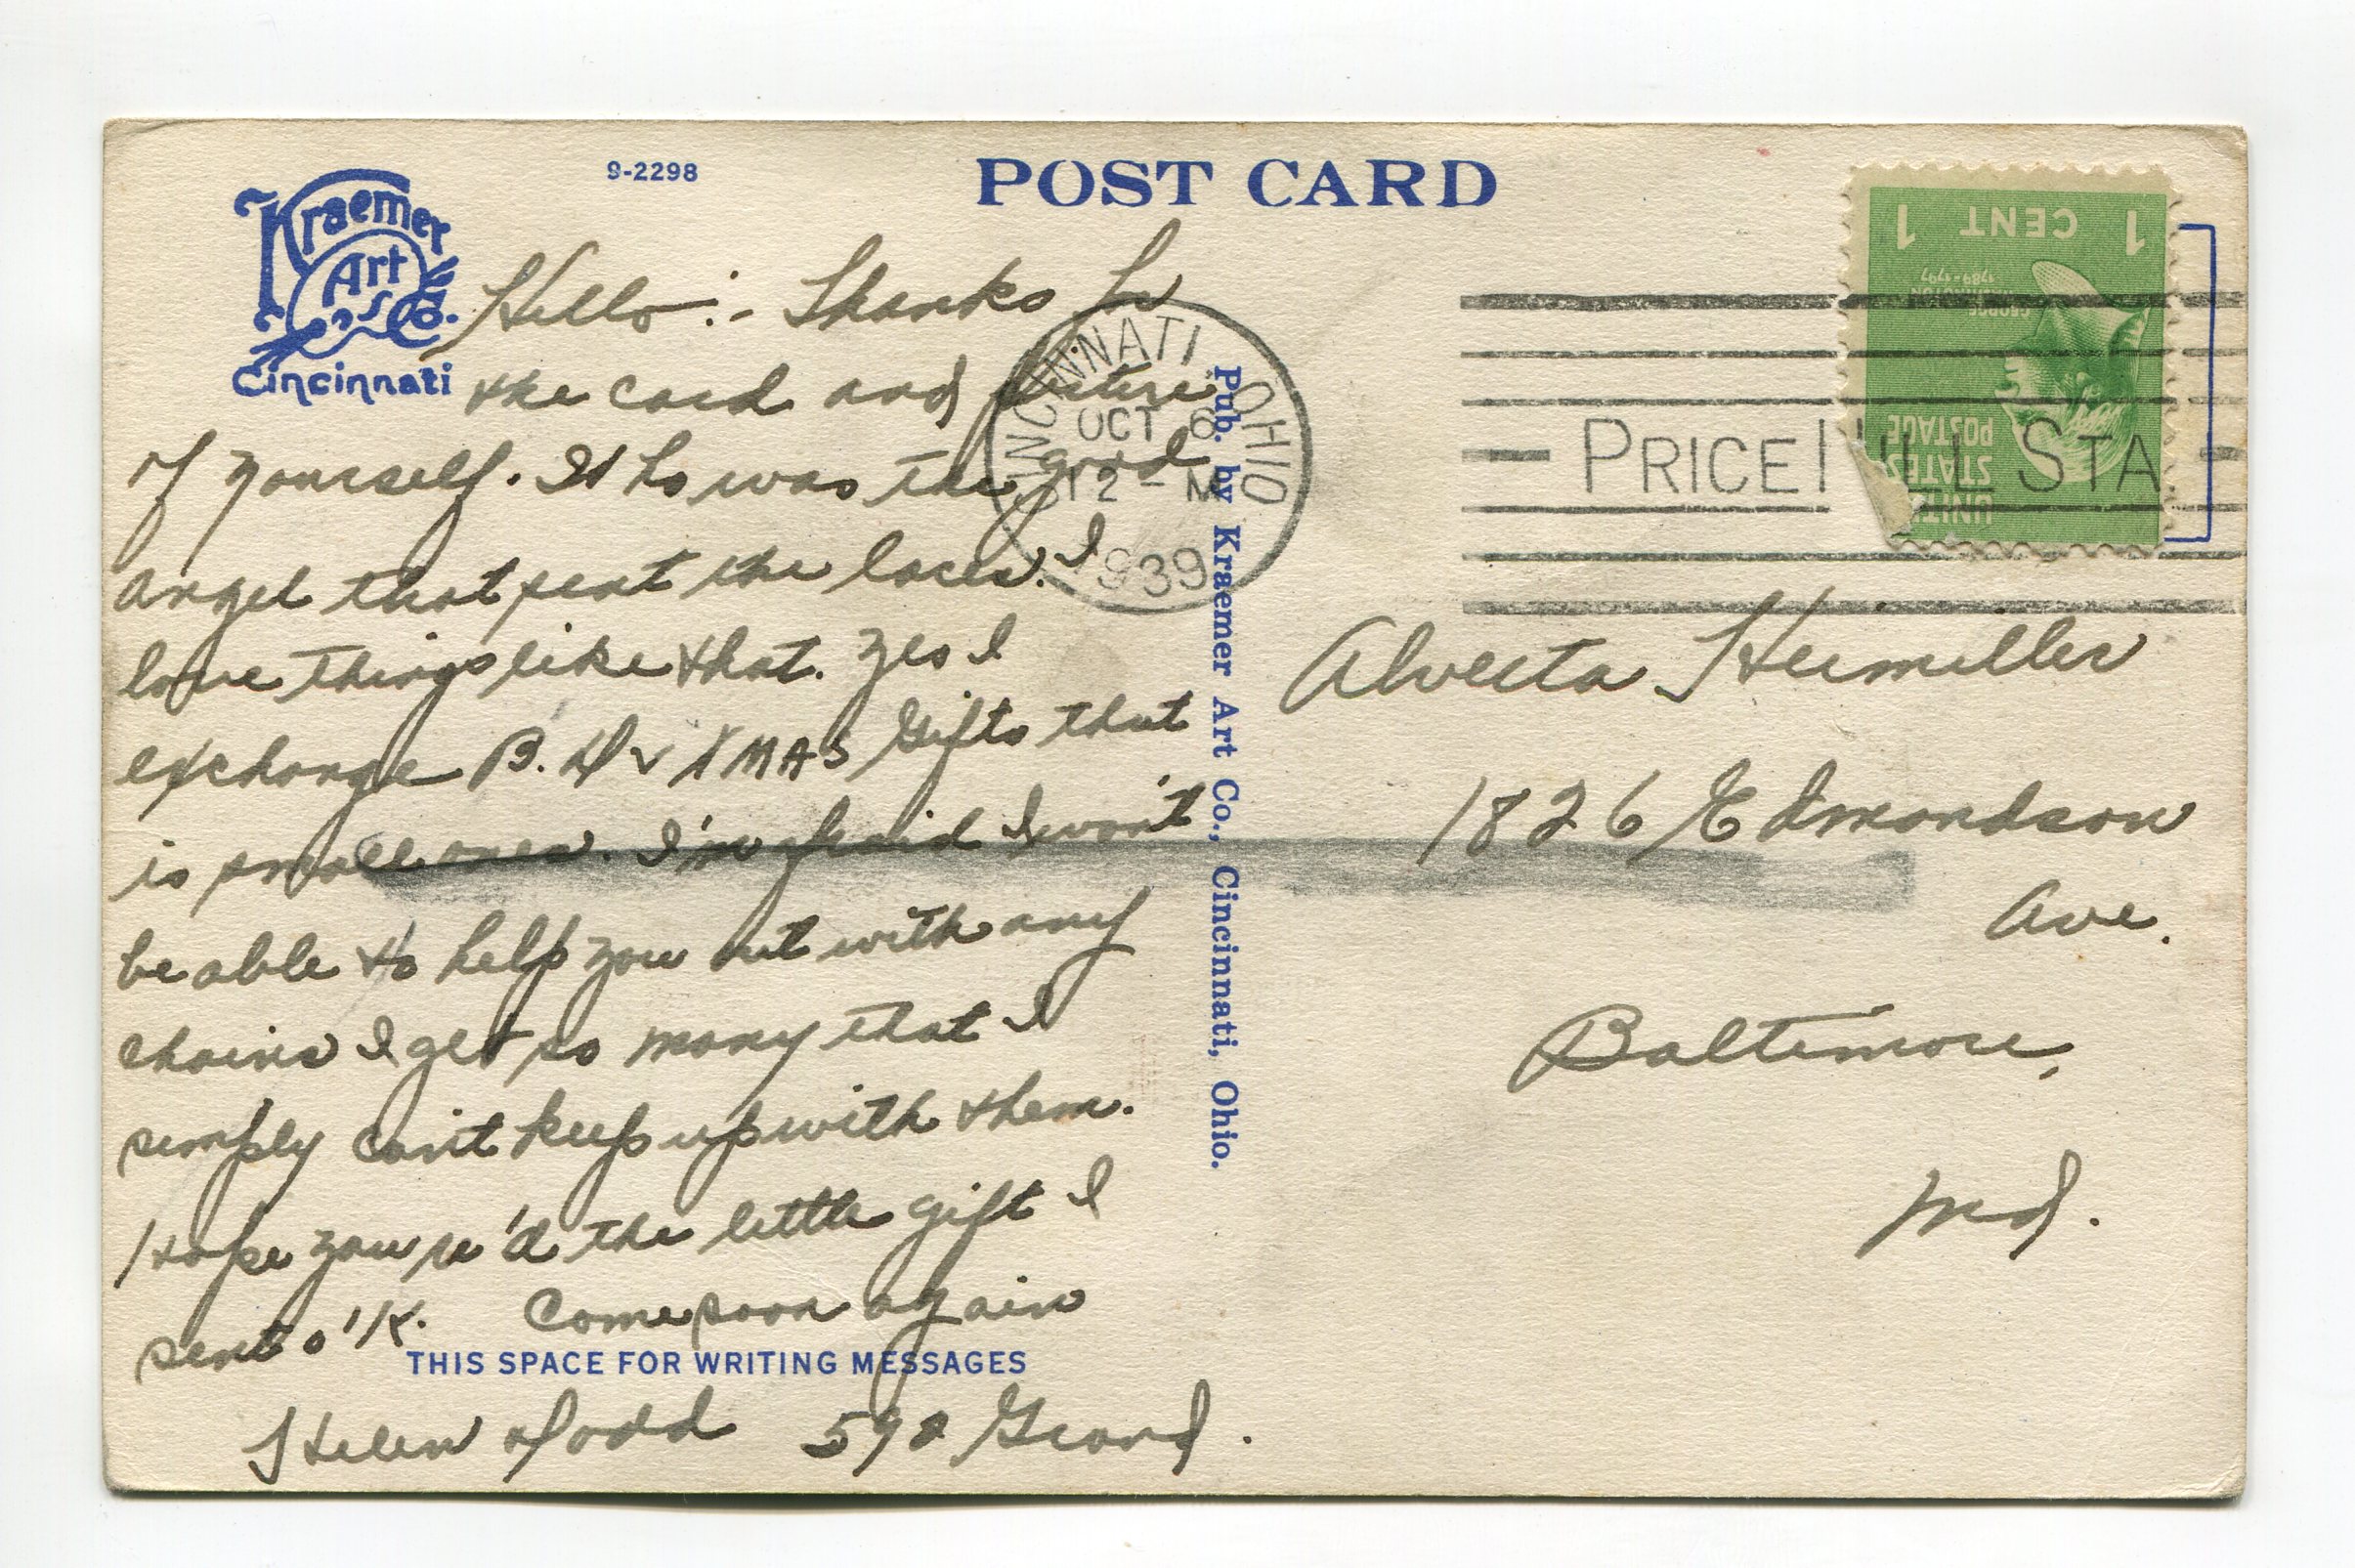 Kraemer
Art
& Co.
Cincinnati
9-2298
POST CARD
Hello :- Thanks for
the card and picture
of yourself. Who was the good
angel that sent the laces. I
love things like that. Yes I
exchange B. D & XMAS Gifts that
is small ones. I'm afraid I won't
be able to help you out with any
chains I get so many that I
simply can't keep up with them.
Hope you re'd the little gift I
sent o'K. Come soon again
THIS SPACE FOR WRITING MESSAGES
Helen Dodd 592 Grand.
Pub. by Kraemer Art Co., Cincinnati, Ohio.
CINCINNATI OHIO
OCT 6
12 - M
1939
PRICE HILL STA
1 CENT 1
GEORGE WASHINGTON
1789-1797
UNITED STATES POSTAGE
Alverta Heimiller
1826 Edmondson
Ave.
Baltimore,
Md.